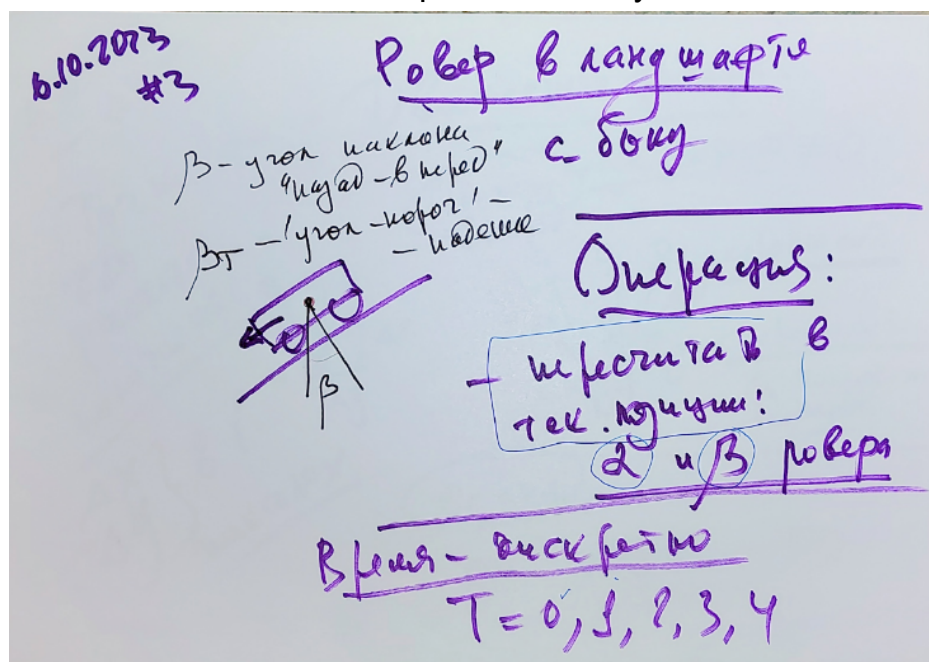 6.10.2023
#3
Ровер в ландшафте
с боку
β - угол наклона
"назад - вперед"
βт - 'угол - порог' -
- падение
β
Операция:
- пересчитать в
тек. позиции:
α и β ровера
Время - дискретно
T = 0, 1, 2, 3, 4